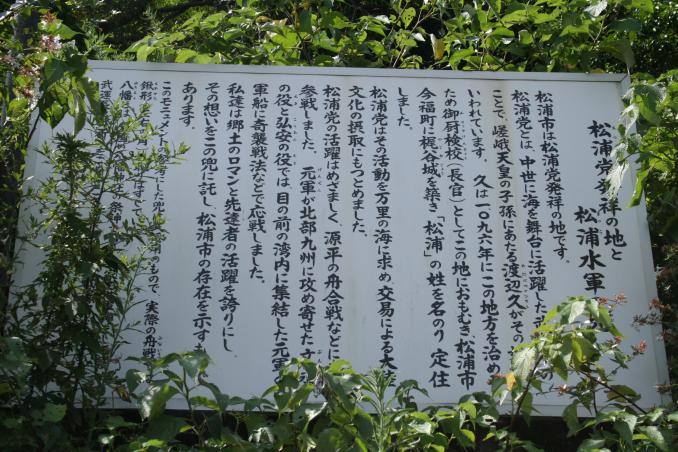 松浦党発祥の地と
松浦水軍
松浦市は松浦党発祥の地です。
松浦党とは、中世に海を舞台に活躍した
ことで、嵯峨天皇の子孫にあたる渡辺久がその
いわれています。久は一〇九六年にこの地方を治め
ため御厨検校(長官)としてこの地におもむき、松浦市
今福町に梶谷城を築き「松浦」の姓を名のり 定住
しました。
松浦党はその活動を万里の海に求め 交易による大
文化の摂取にもつとめました。
松浦党の活躍はめざましく、源平の舟合戦などに
参戦しました。 元軍が北部九州に攻め寄せた
の役と弘安の役では、目の前の湾内に集結した元軍
軍船に奇襲戦法などで応戦しました。
私達は郷土のロマンと先達者の活躍を誇りにし、
その想いをこの兜に託し、松浦市の存在を示す
あります。
このモニュメント 考にした兜 のもので、実際の舟戦
鍬形
八幡
武運